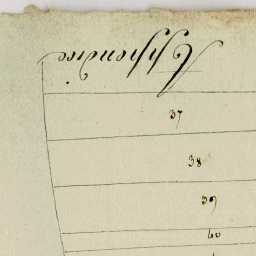 Appendice
37
38
39
40